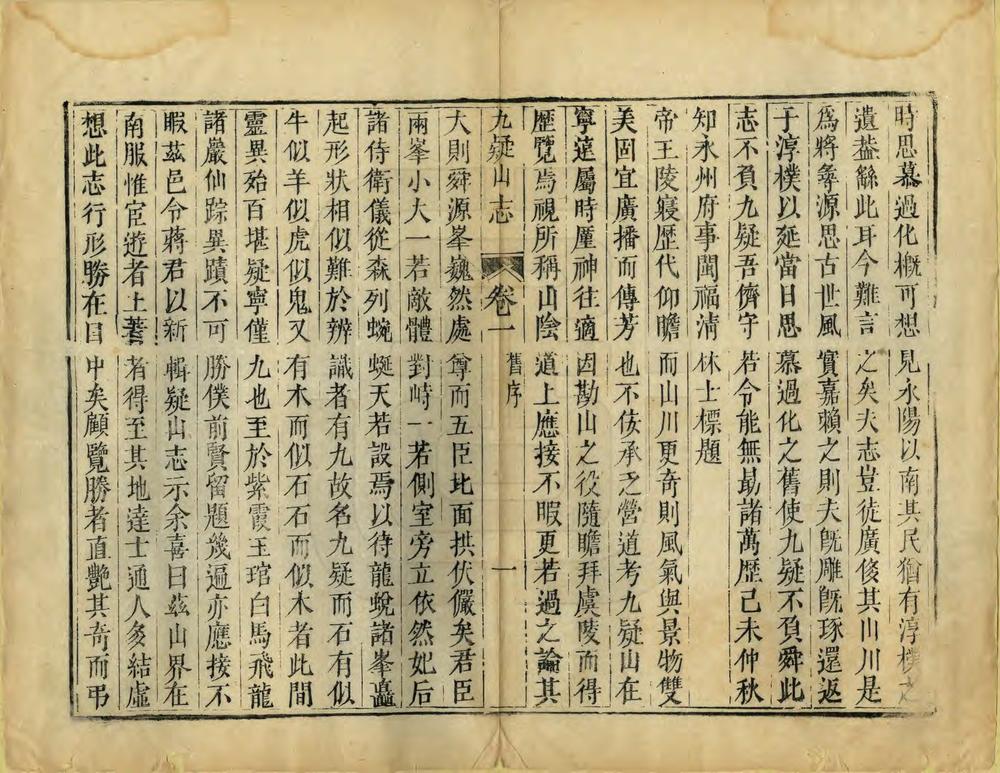 時思慕過化槪可想見永陽以南其民猶有淳樸之
遺葢繇此耳今難言之矣夫志豈徒廣俊其山川是
爲將豢源思古世風實嘉賴之則夫旣雕旣琢還返
于淳樸以延當日思慕過化之舊使九疑不負舜此
志不負九疑吾儕守若令能無勗諸萬歷己未仲秋
知永州府事閩福淸林士標題
帝王陵寢歷代仰瞻而山川更奇則風氣與景物雙
美固宜廣播而傳芳也不佞承乏營道考九疑山在
寧遠屬時厪神往適因勘山之役隨瞻拜虞陵而得
歷覽焉視所稱山陰道上應接不暇更若過之論其
九疑山志 卷一 舊序 一
大則舜源峯巍然處尊而五臣北面拱伏儼矣君臣
兩峯小大一若敵體對峙一若側室旁立依然妃后
諸侍衛儀從森列蜿蜒天若設焉以待龍蛻諸峯矗
起形狀相似難於辨識者有九故名九疑而石有似
牛似羊似虎似鬼又有木而似石石而似木者此間
靈異殆百堪疑寧僅九也至於紫霞玉琯白馬飛龍
諸巖仙踪異蹟不可勝僕前賢留題幾遍亦應接不
暇茲邑令蔣君以新輯疑山志示余喜曰茲山界在
南服惟宦遊者土著者得至其地達士通人多結虛
想此志行形勝在目中矣顧覽勝者直艷其奇而弔